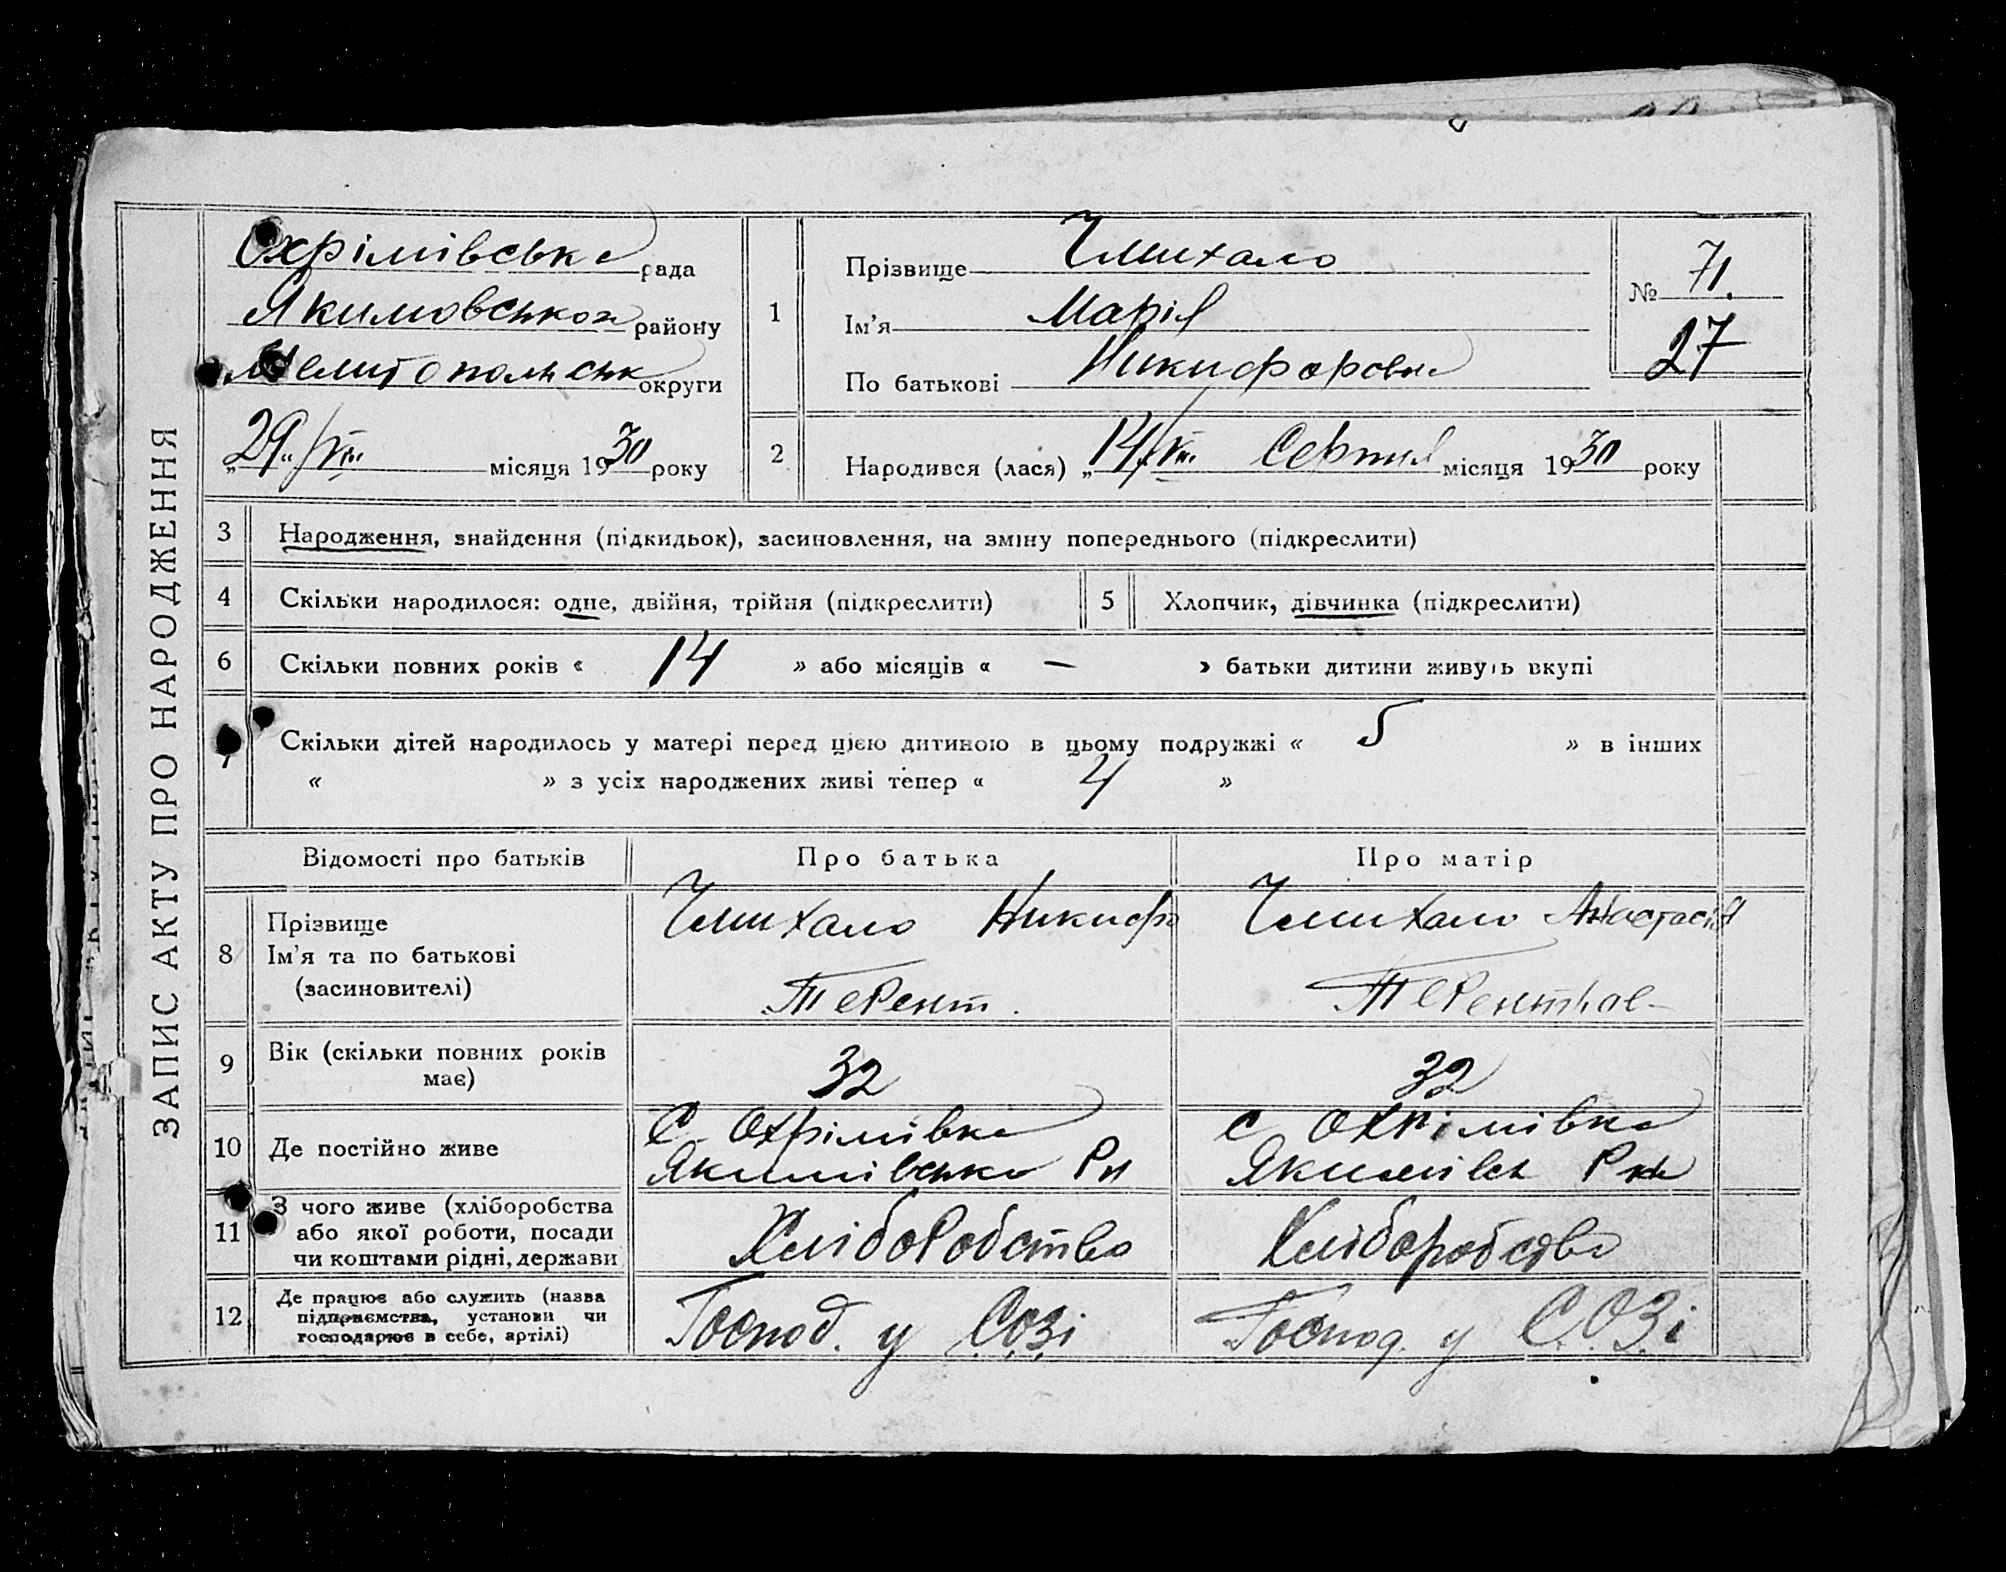 ЗАПИС АКТУ ПРО НАРОДЖЕННЯ
Охрімівська рада
Якимовського району
Мелитопольськ округи
„29" /VIII місяця 1930 року
1
Прізвище Чмихало
Ім'я Марія
По батькові Никифоровна
№ 71.
27
2
Народився (лася) „14/VIII Серпня місяця 1930 року
3 Народження, знайдення (підкидьок), засиновлення, на зміну попереднього (підкреслити)
4 Скільки народилося: одне, двійня, трійня (підкреслити)
5 Хлопчик, дівчинка (підкреслити)
6 Скільки повних років « 14 » або місяців « — » батьки дитини живуть вкупі
7 Скільки дітей народилось у матері перед цією дитиною в цьому подружжі « 5 » в інших
« » з усіх народжених живі тепер « 4 »
Відомості про батьків Про батька Про матір
8 Прізвище
Ім'я та по батькові
(засиновителі)
Чмихало Никифо
Терент.
Чмихало Анастасія
9 Вік (скільки повних років
має)
32
32
10 Де постійно живе
С Охрімівка
Якимівсько Рн
с Охрімівка
Якимівсь Рна
11 З чого живе (хліборобства
або якої роботи, посади
чи коштами рідні, держави
Хліборобство
Хліборобство
12 Де працює або служить (назва
підприємства, установи чи
господарює в себе, артілі)
Господ. у С.О.З.і
Господ. у С.О.З.і